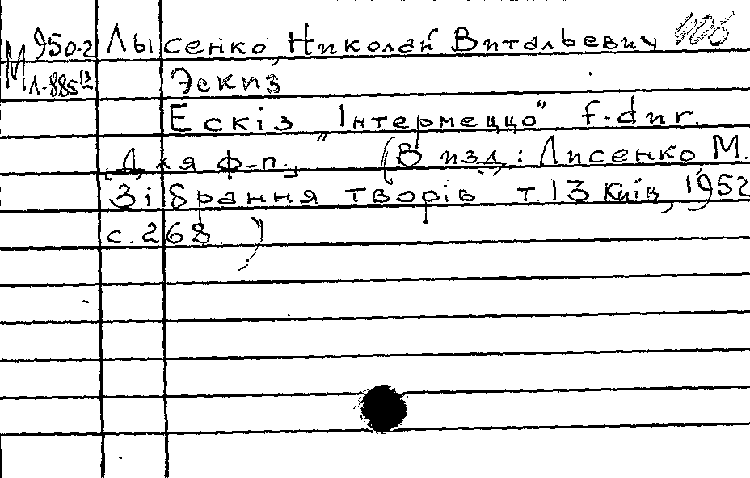 М 950-2 Лысенко, Николай Витальевич 106
Л-885 13 Эскиз
Ескіз „Інтермеццо" f-dur.
[Для ф-п.] (В изд.: Лисенко М.
Зібрання творів т 13 Київ, 1952
с. 268 )